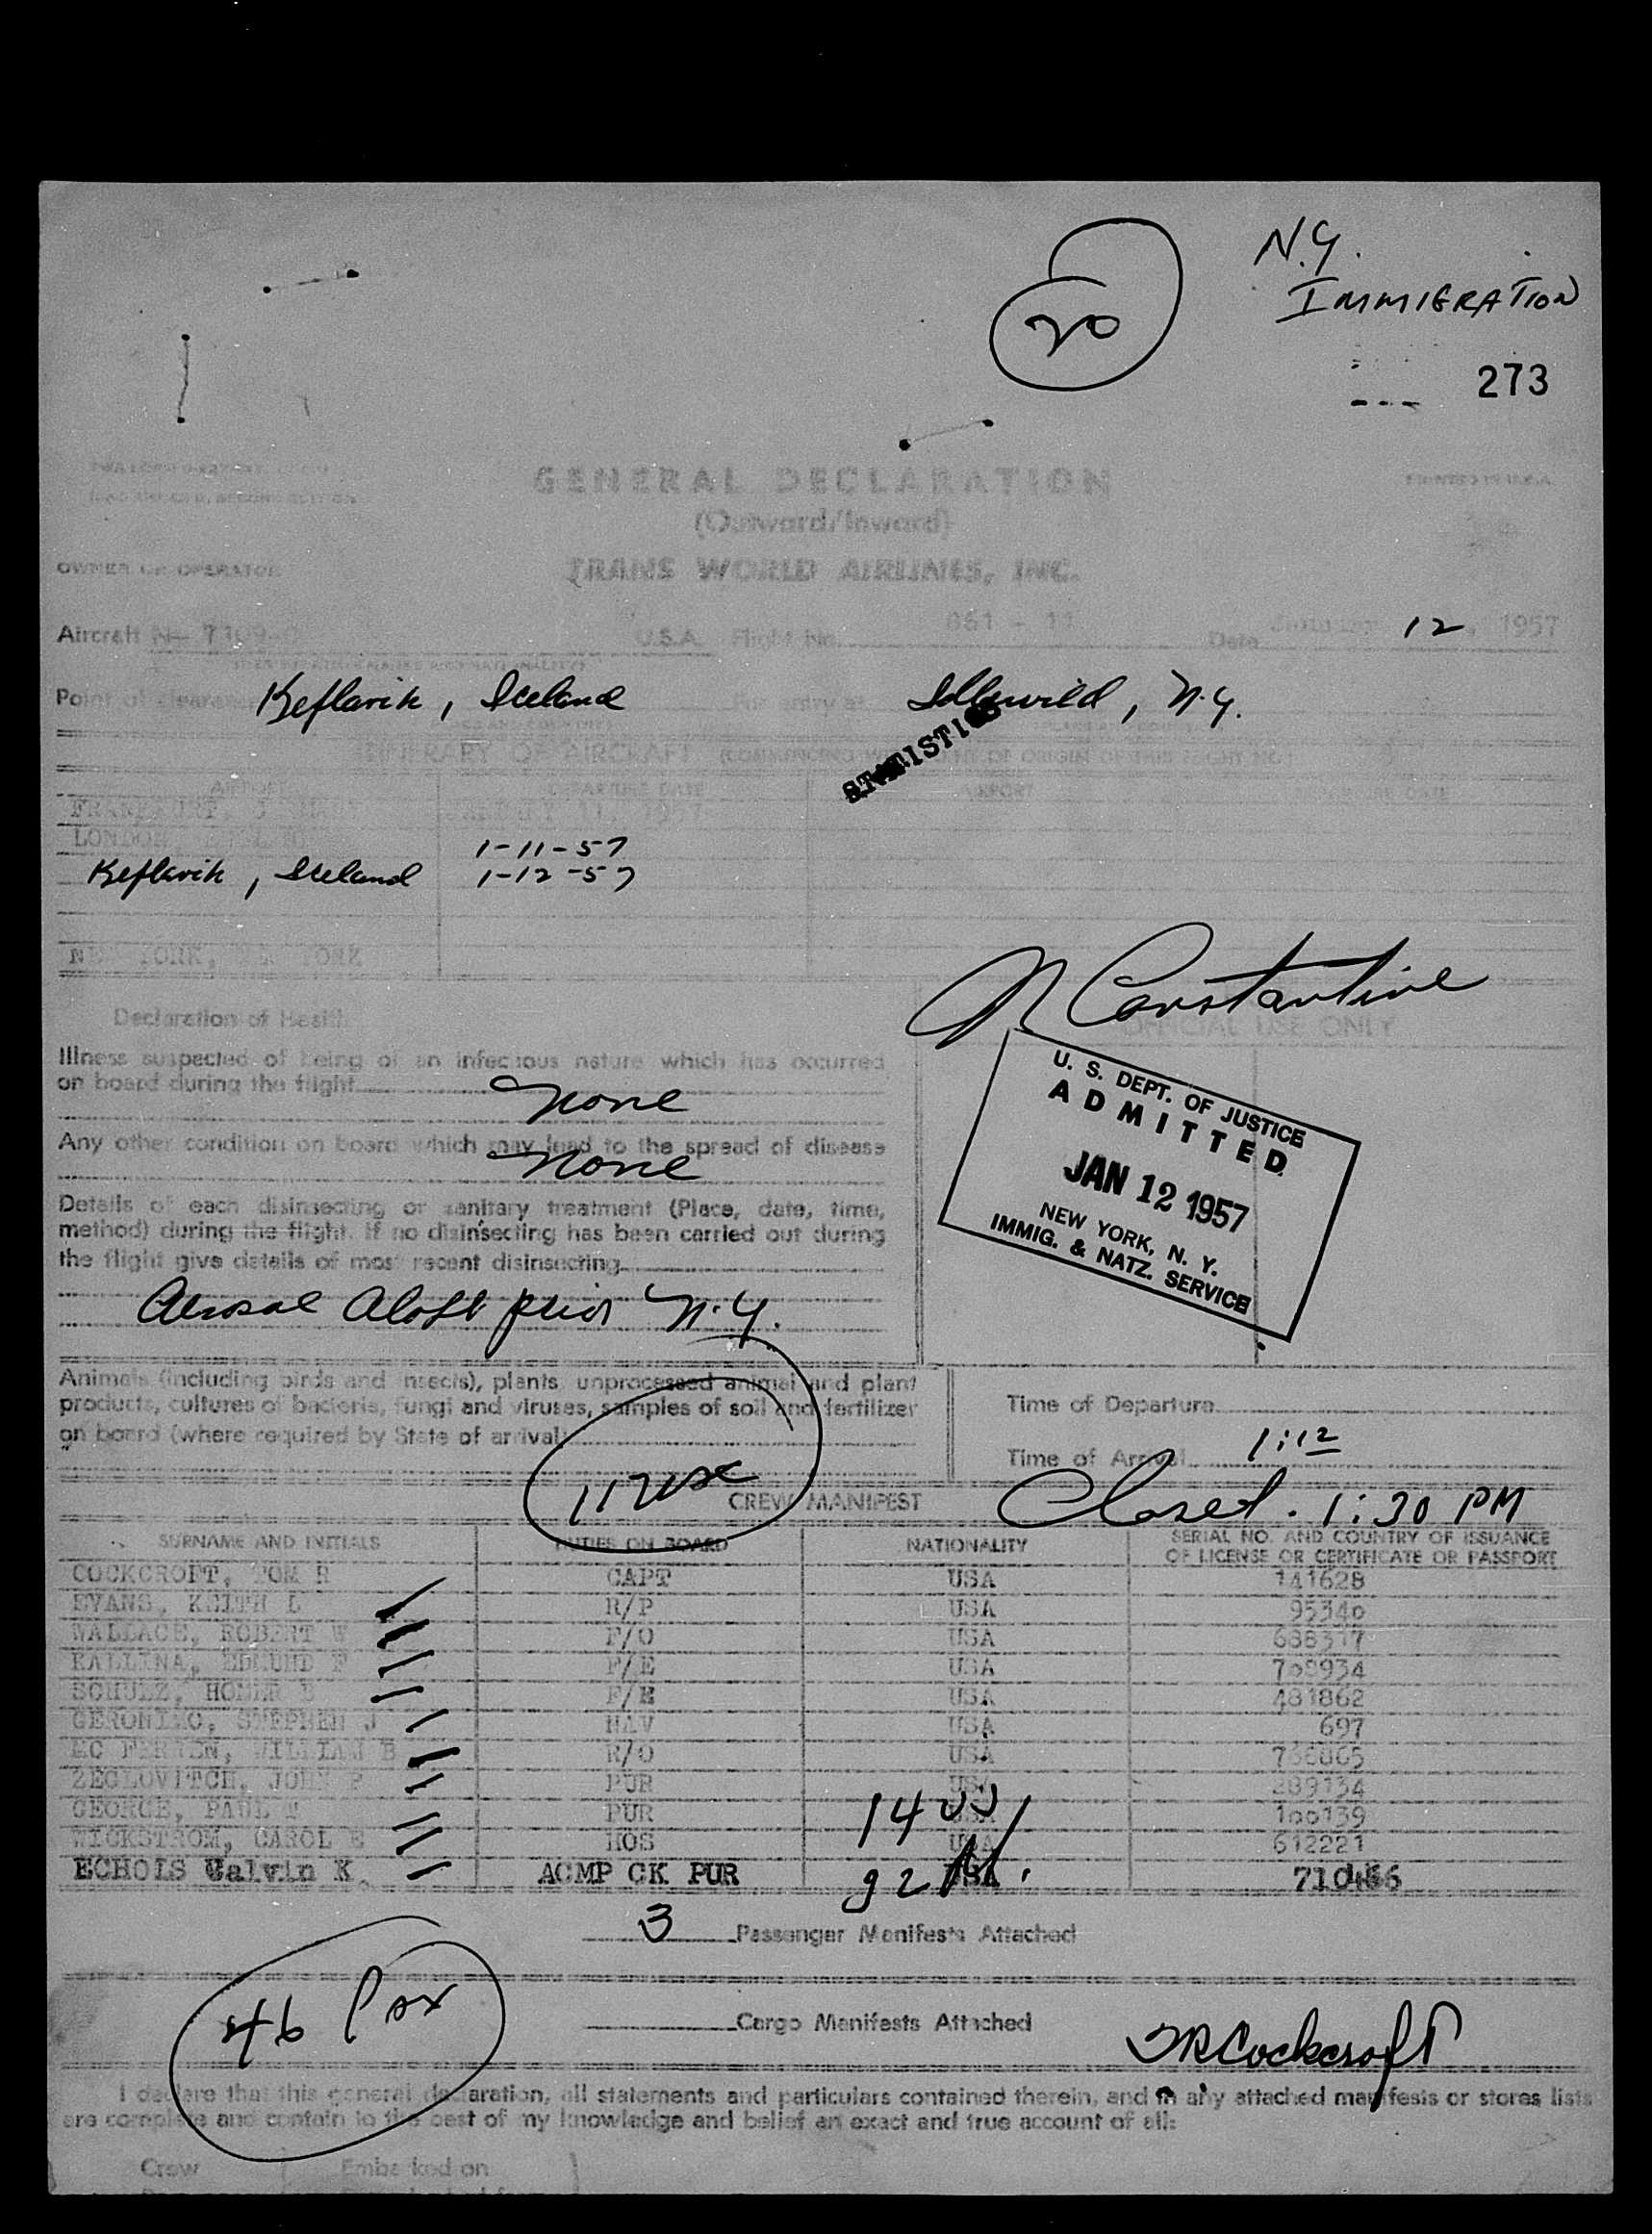 N.Y.
IMMIGRATION
20
273
GENERAL DECLARATION
PRINTED IN U.S.A.
(Outward/Inward)
OWNER OR OPERATOR
TRANS WORLD AIRLINES, INC.
Aircraft N- U.S.A. Flight No. 861 - 11 Date January 12, 1957
Point of clearance Keflavik, Iceland For entry at Idlewild, N.Y.
STATISTICS
ITINERARY OF AIRCRAFT (COMMENCING WITH POINT OF ORIGIN OF THIS FLIGHT NO.)
AIRPORT DEPARTURE DATE AIRPORT DEPARTURE DATE
FRANKFURT, JANUARY 11, 1957
LONDON, 1-11-57
Keflavik, Iceland 1-12-57
NEW YORK, NEW YORK
N Constantine
Declaration of Health
OFFICIAL USE ONLY
Illness suspected of being of an infectious nature which has occurred
on board during the flight
None
Any other condition on board which may lead to the spread of disease
None
Details of each disinsecting or sanitary treatment (Place, date, time,
method) during the flight. If no disinsecting has been carried out during
the flight give details of most recent disinsecting
Aerosol Aloft prior N.Y.
U. S. DEPT. OF JUSTICE
ADMITTED
JAN 12 1957
NEW YORK, N. Y.
IMMIG. & NATZ. SERVICE
Animals (including birds and insects), plants, unprocessed animal and plant
products, cultures of bacteria, fungi and viruses, samples of soil and fertilizer
on board (where required by State of arrival)
Time of Departure
Time of Arrival 1:12
Closed. 1:30 PM
CREW MANIFEST
SURNAME AND INITIALS DUTIES ON BOARD NATIONALITY SERIAL NO. AND COUNTRY OF ISSUANCE
OF LICENSE OR CERTIFICATE OR PASSPORT
COCKCROFT, TOM R CAPT USA 141628
EVANS, KEITH L R/P USA 95340
WALLACE, ROBERT W F/O USA
KALLINA, EDMUND F F/E USA 708934
SCHULZ, HOMER F/E USA 481862
GERONIMO, STEPHEN J NAV USA 697
WILLIAM B R/O USA
ZECLOVITCH, JOHN PUR USA 289134
GEORGE, PAUL PUR USA 100139
WICKSTROM, CAROL E HOS USA 612221
ECHOLS Calvin K ACMP CK PUR USA 710466
14
3 Passenger Manifests Attached
46 Pax
Cargo Manifests Attached
TRCockcroft
I declare that this general declaration, all statements and particulars contained therein, and in any attached manifests or stores lists
are complete and contain to the best of my knowledge and belief an exact and true account of all:
Crew Embarked on